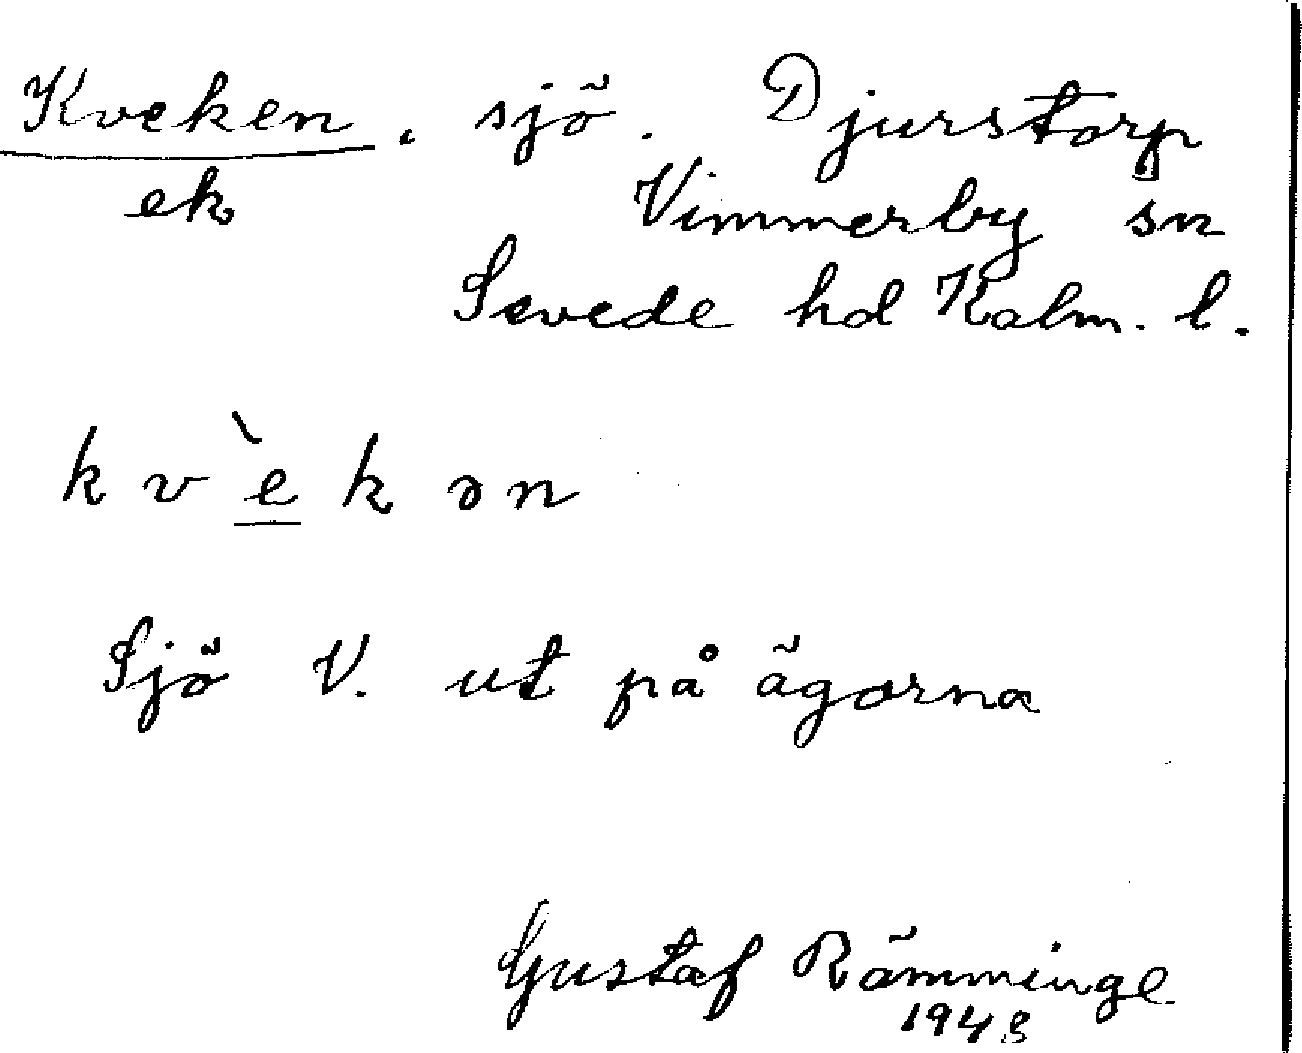 Kveken. sjö. Djurstorp
ek Vimmerby sn
Sevede hd Kalm. l.
kv`ekən
Sjö V. ut på ägorna
Gustaf Rämminge
1948